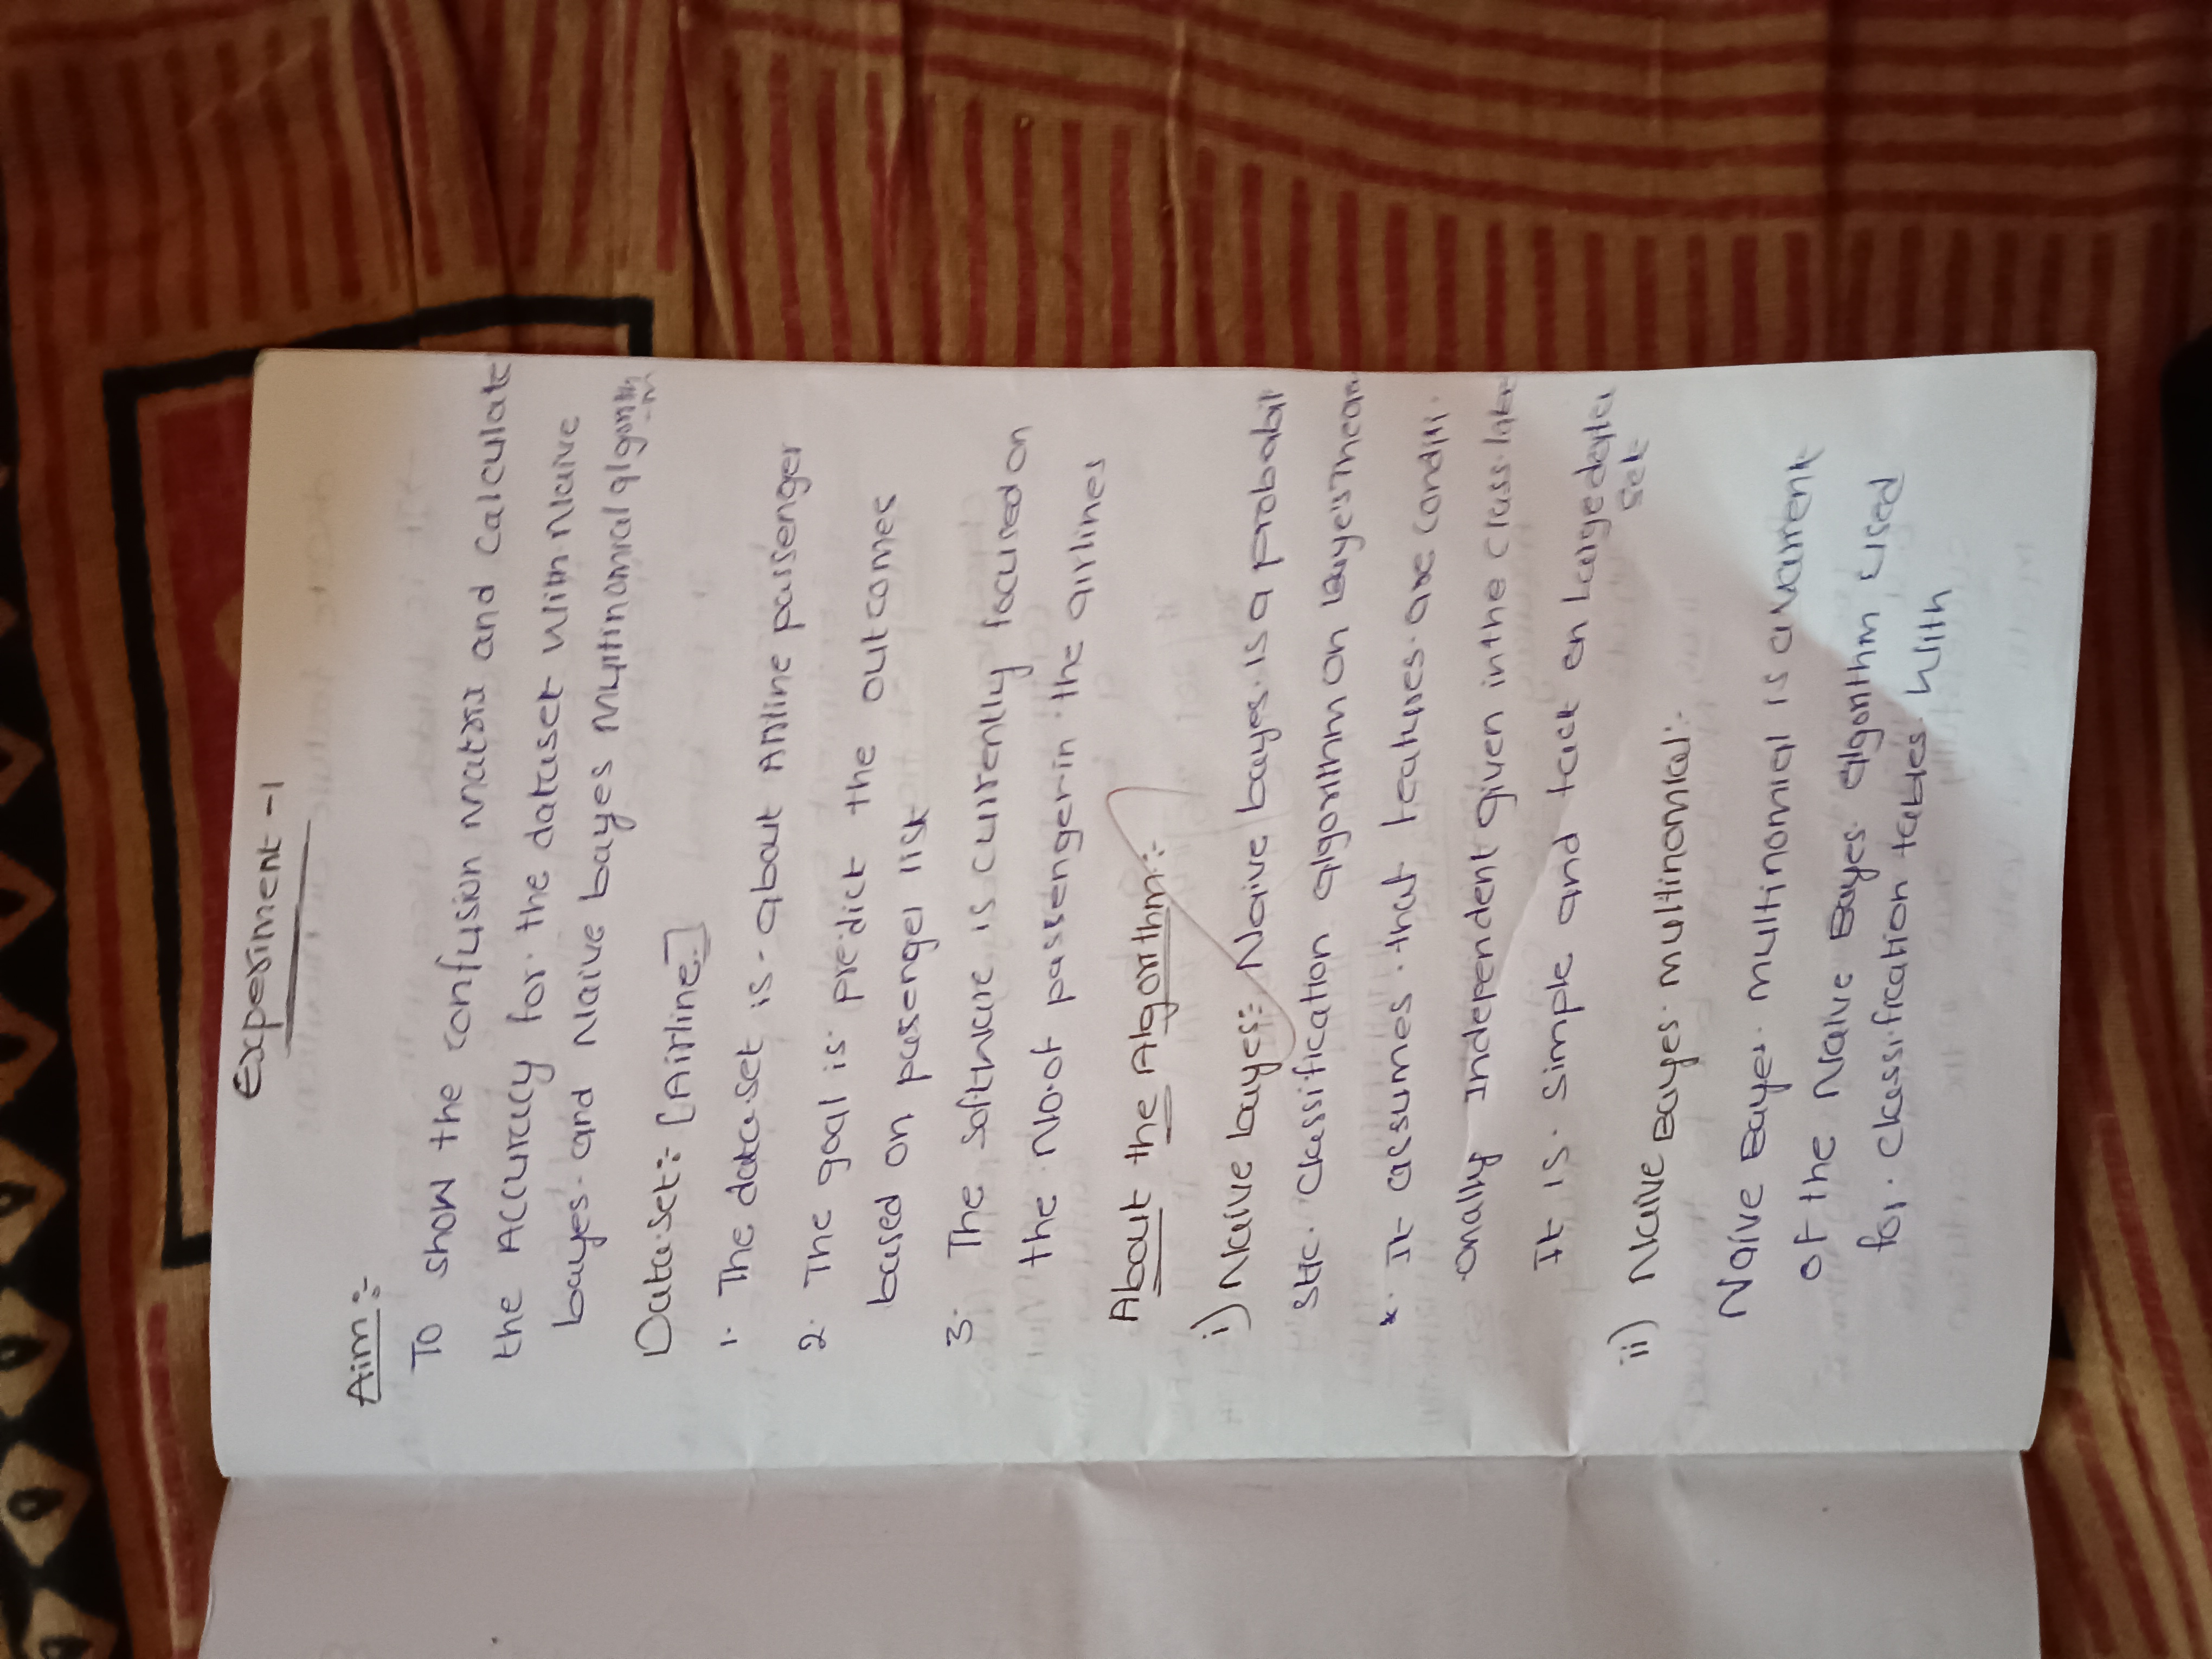 Experiment -1
Aim :-
To show the confusion matrix and calculate
the Accuracy for the dataset with Naive
bayes and Naive bayes Multinomial algorith
-m
Dataset:- [Airline]
1. The dataset is about Airline passenger
2. The goal is predict the outcomes
based on pasenger list
3. The software is currently focused on
the No.of passenger in the airlines
About the Algorithm:-
i) Naive bayes:- Naive bayes is a probabili
stic classification algorithm on Baye's Theorm
*. It assumes that features are conditi
onally Independent given in the class
It is simple and fast on Large data
set
ii) Naive Bayes multinomial:-
Naive Bayes multinomial is a varient
of the Naive Bayes Algorithm used
for classification tables With